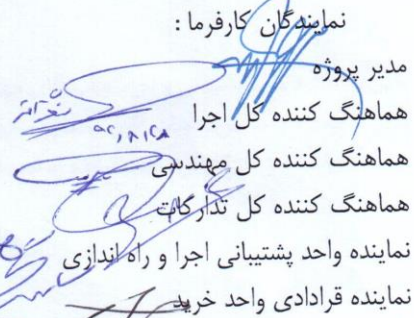 نمایندگان کارفرما :
مدیر پروژه
هماهنگ کننده کل اجرا
هماهنگ کننده کل مهندسی
هماهنگ کننده کل تدارکات
نماینده واحد پشتیبانی اجرا و راه اندازی
نماینده قرادادی واحد خرید